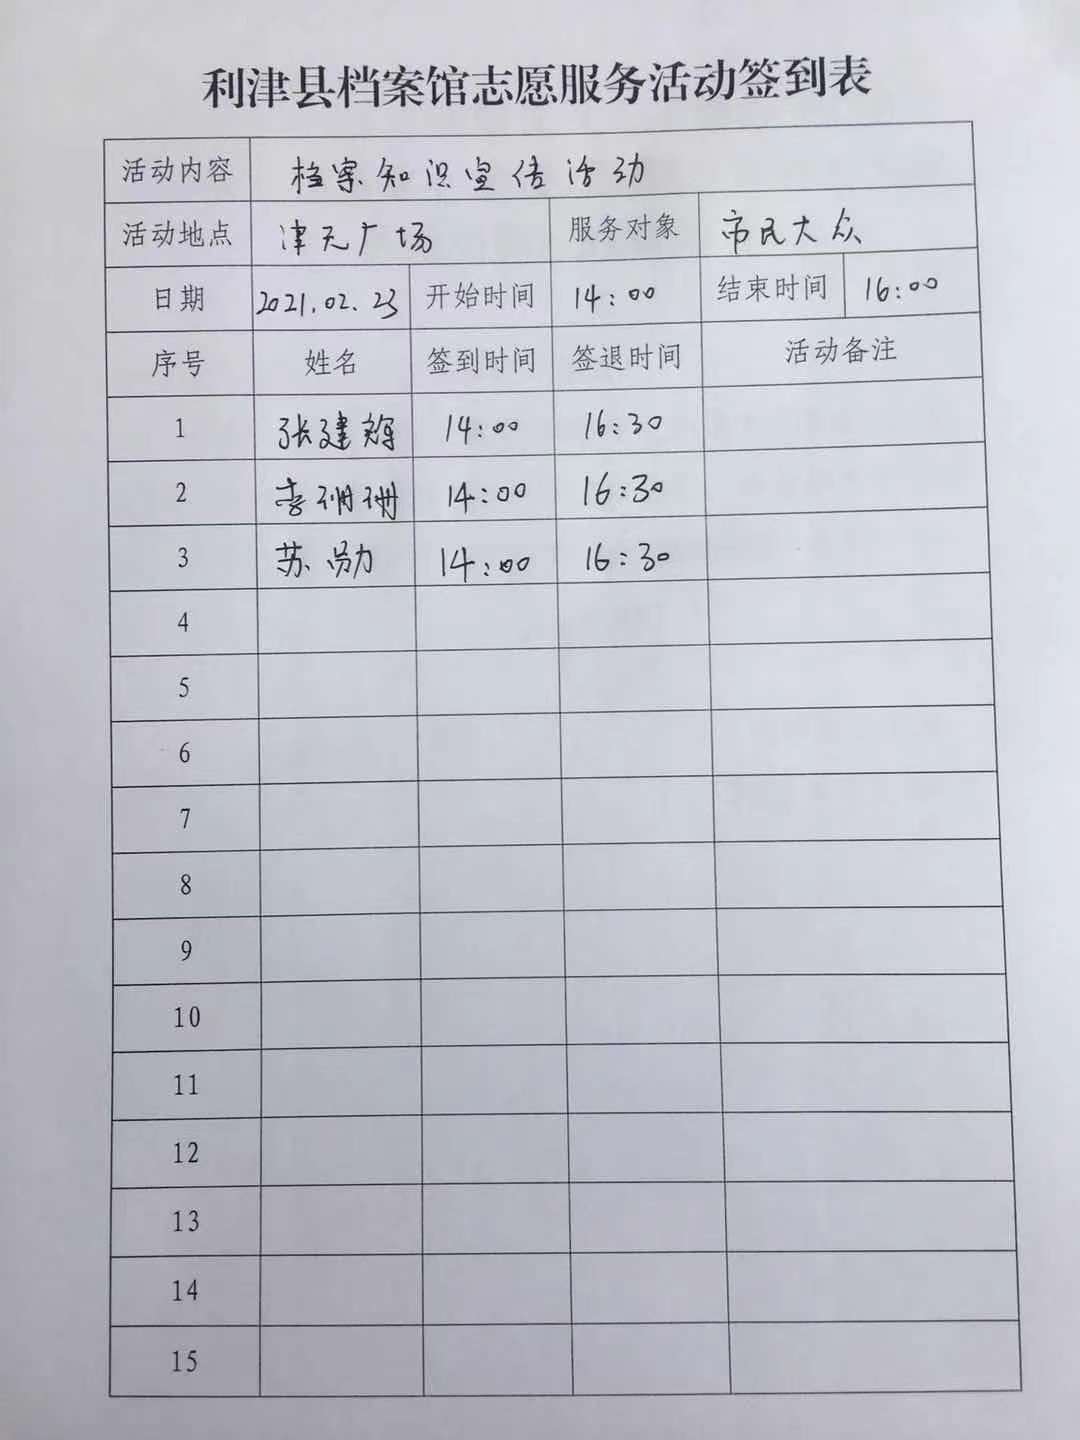 利津县档案馆志愿服务活动签到表
活动内容 档案知识宣传活动
活动地点 津元广场 服务对象 市民大众
日期 2021.02.23 开始时间 14:00 结束时间 16:00
序号 姓名 签到时间 签退时间 活动备注
1 张建 14:00 16:30
2 李珊珊 14:00 16:30
3 苏勋 14:00 16:30
4
5
6
7
8
9
10
11
12
13
14
15